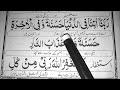 رَبَّنَا اٰتِنَا فِی الدُّنْیَا حَسَنَةً وَّ فِی الْاٰخِرَةِ
حَسَنَةً عَذَابَ النَّارِ
اَسْتَغْفِرُ اللّٰهَ رَبِّیْ مِنْ كُلِّ